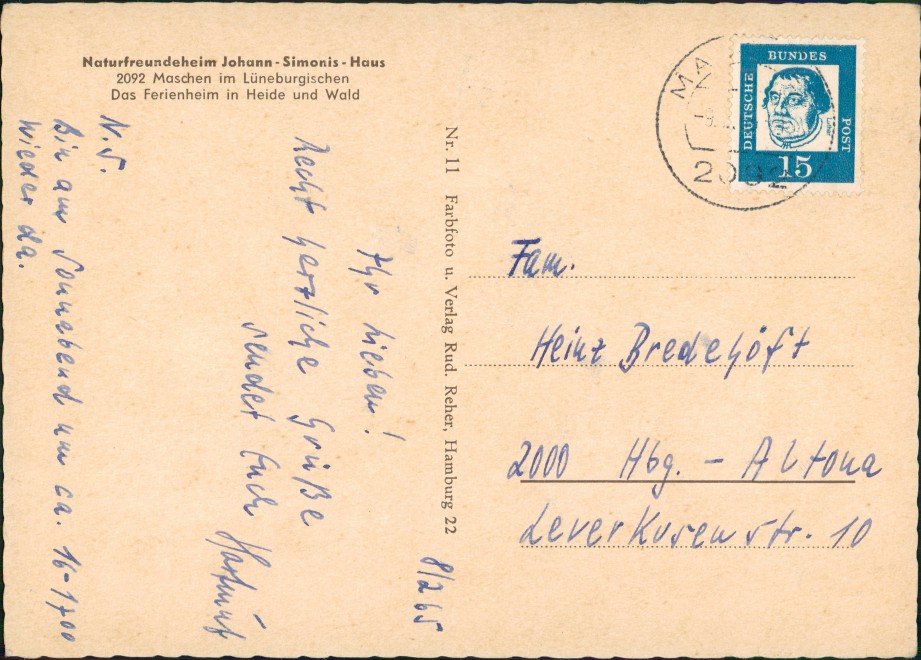 Naturfreundeheim Johann-Simonis-Haus
2092 Maschen im Lüneburgischen
Das Ferienheim in Heide und Wald
8/2 65
Ihr Lieben!
Recht herzliche Grüße
sendet Euch
Hartmut
N.S.
Bin am Sonnabend um ca. 16-1700
wieder da.
Nr. 11 Farbfoto u. Verlag Rud. Reher, Hamburg 22
MA
2092
DEUTSCHE
BUNDES
POST
15
Fam.
Heinz Bredehöft
2000 Hbg. - Altona
Leverkusenstr. 10